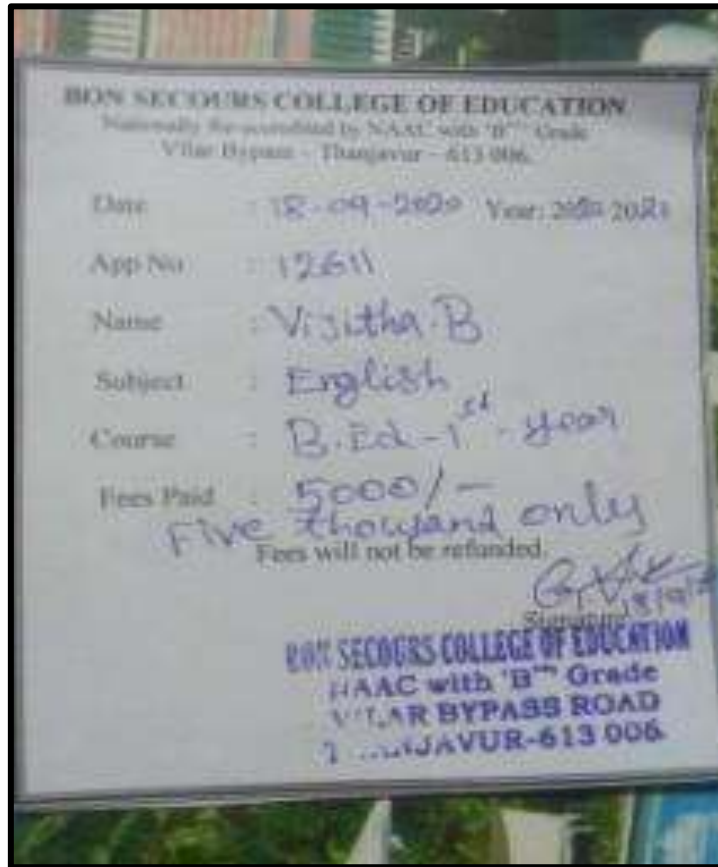 BON SECOURS COLLEGE OF EDUCATION
Nationally Re-accredited by NAAC with 'B++' Grade
Vilar Bypass - Thanjavur - 613 006.
Date : 18-09-2020 Year: 2020 2021
App No : 12611
Name : Vijitha.B
Subject : English
Course : B.Ed-1st-year
Fees Paid : 5000/-
Five thousand only
Fees will not be refunded.
Signature
BON SECOURS COLLEGE OF EDUCATION
NAAC with 'B++' Grade
VILAR BYPASS ROAD
THANJAVUR-613 006.